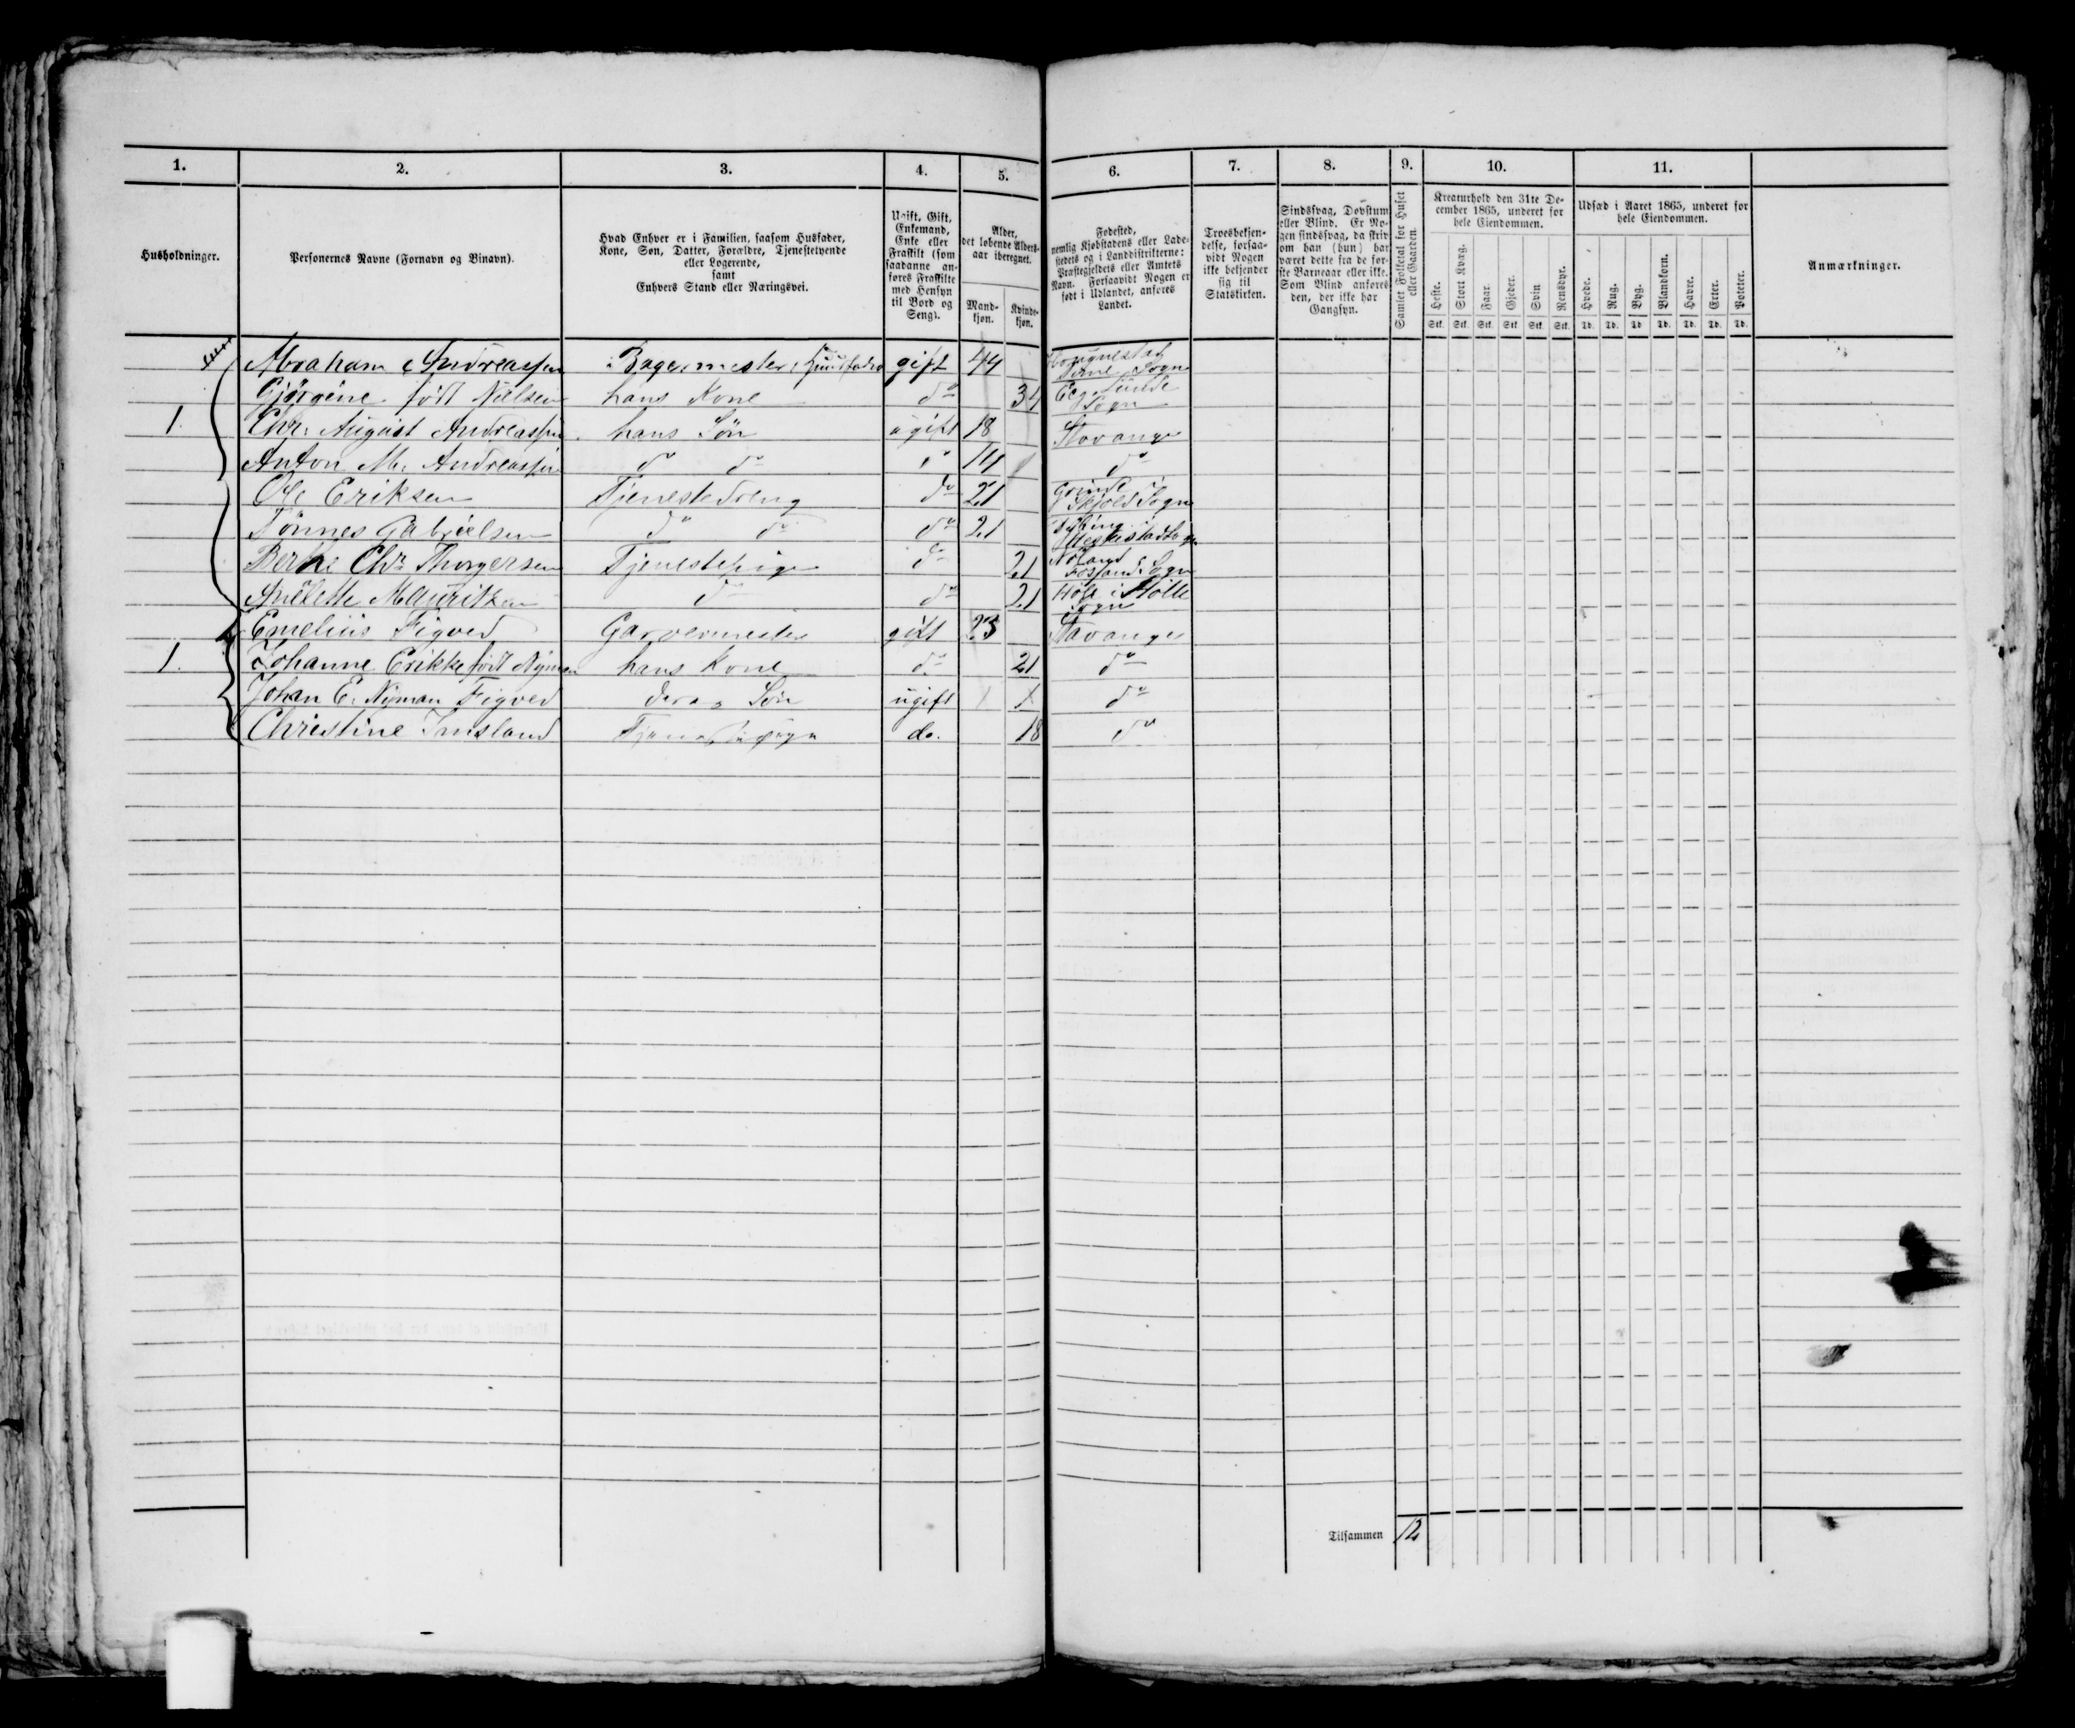 1. 2. 3. 4. 5. 6. 7. 8. 9. 10. 11.
Husholdninger.
Personernes Navne (Fornavn og Binavn).
Hvad Enhver er i Familien, saasom Husfader,
Kone, Søn, Datter, Forældre, Tjenestetyende
eller Logerende,
samt
Enhvers Stand eller Næringsvei.
Ugift, Gift,
Enkemand,
Enke eller
Fraskilt (som
saadanne an-
føres Fraskilte
med Hensyn
til Bord og
Seng).
Alder,
det løbende Alders-
aar iberegnet.
Mand-
kjøn.
Kvinde-
kjøn.
Fødested,
nemlig Kjøbstadens eller Lade-
stedets og i Landdistrikterne:
Præstegjeldets eller Amtets
Navn. Forsaavidt Nogen er
født i Udlandet, anføres
Landet.
Troesbekjen-
delse, forsaa-
vidt Nogen
ikke bekjender
sig til
Statskirken.
Sindssvag, Døvstum
eller Blind. Er No-
gen sindssvag, da skriv
om han (hun) har
været dette fra de før-
ste Barneaar eller ikke.
Som Blind anføres
den, der ikke har
Gangsyn.
Samlet Folketal for Huset
eller Gaarden.
Kreaturhold den 31te De-
cember 1865, underet for
hele Eiendommen.
Heste. Stort Kvæg. Faar. Gjeder. Svin Rensdyr.
Stk. Stk. Stk. Stk. Stk. Stk.
Udsæd i Aaret 1865, underet for
hele Eiendommen.
Hvede. Rug. Byg. Blandkorn. Havre. Erter. Poteter.
Td. Td. Td Td. Td. Td. Td.
Anmærkninger.
Abraham Andreassen Bagermester gift 44 Sogn
Gjørgine født Nielsen hans Kone do 34 Sogn
1. Chr. August Andreassen hans Søn ugift 18 Stavanger
Anton M. Andreassen do do do 14 do
Ole Eriksen Tjenestedreng do 21 Grinde i
Skjold Sogn
Tønnes Gabrielsen do do do 21
Berthe Chr. Thorgersen Tjenestepige do 21 Sogn
Mauritzen do do 21 Høle i Høle
Sogn
Emelius Figved Garvermester gift 25 Stavanger
1. Johanne Erikke født Nyman hans Kone do 21 do
Johan E. Nyman Figved deres Søn ugift 1 do
Christine Imsland Tjenestepige do. 18 do
Tilsammen 12